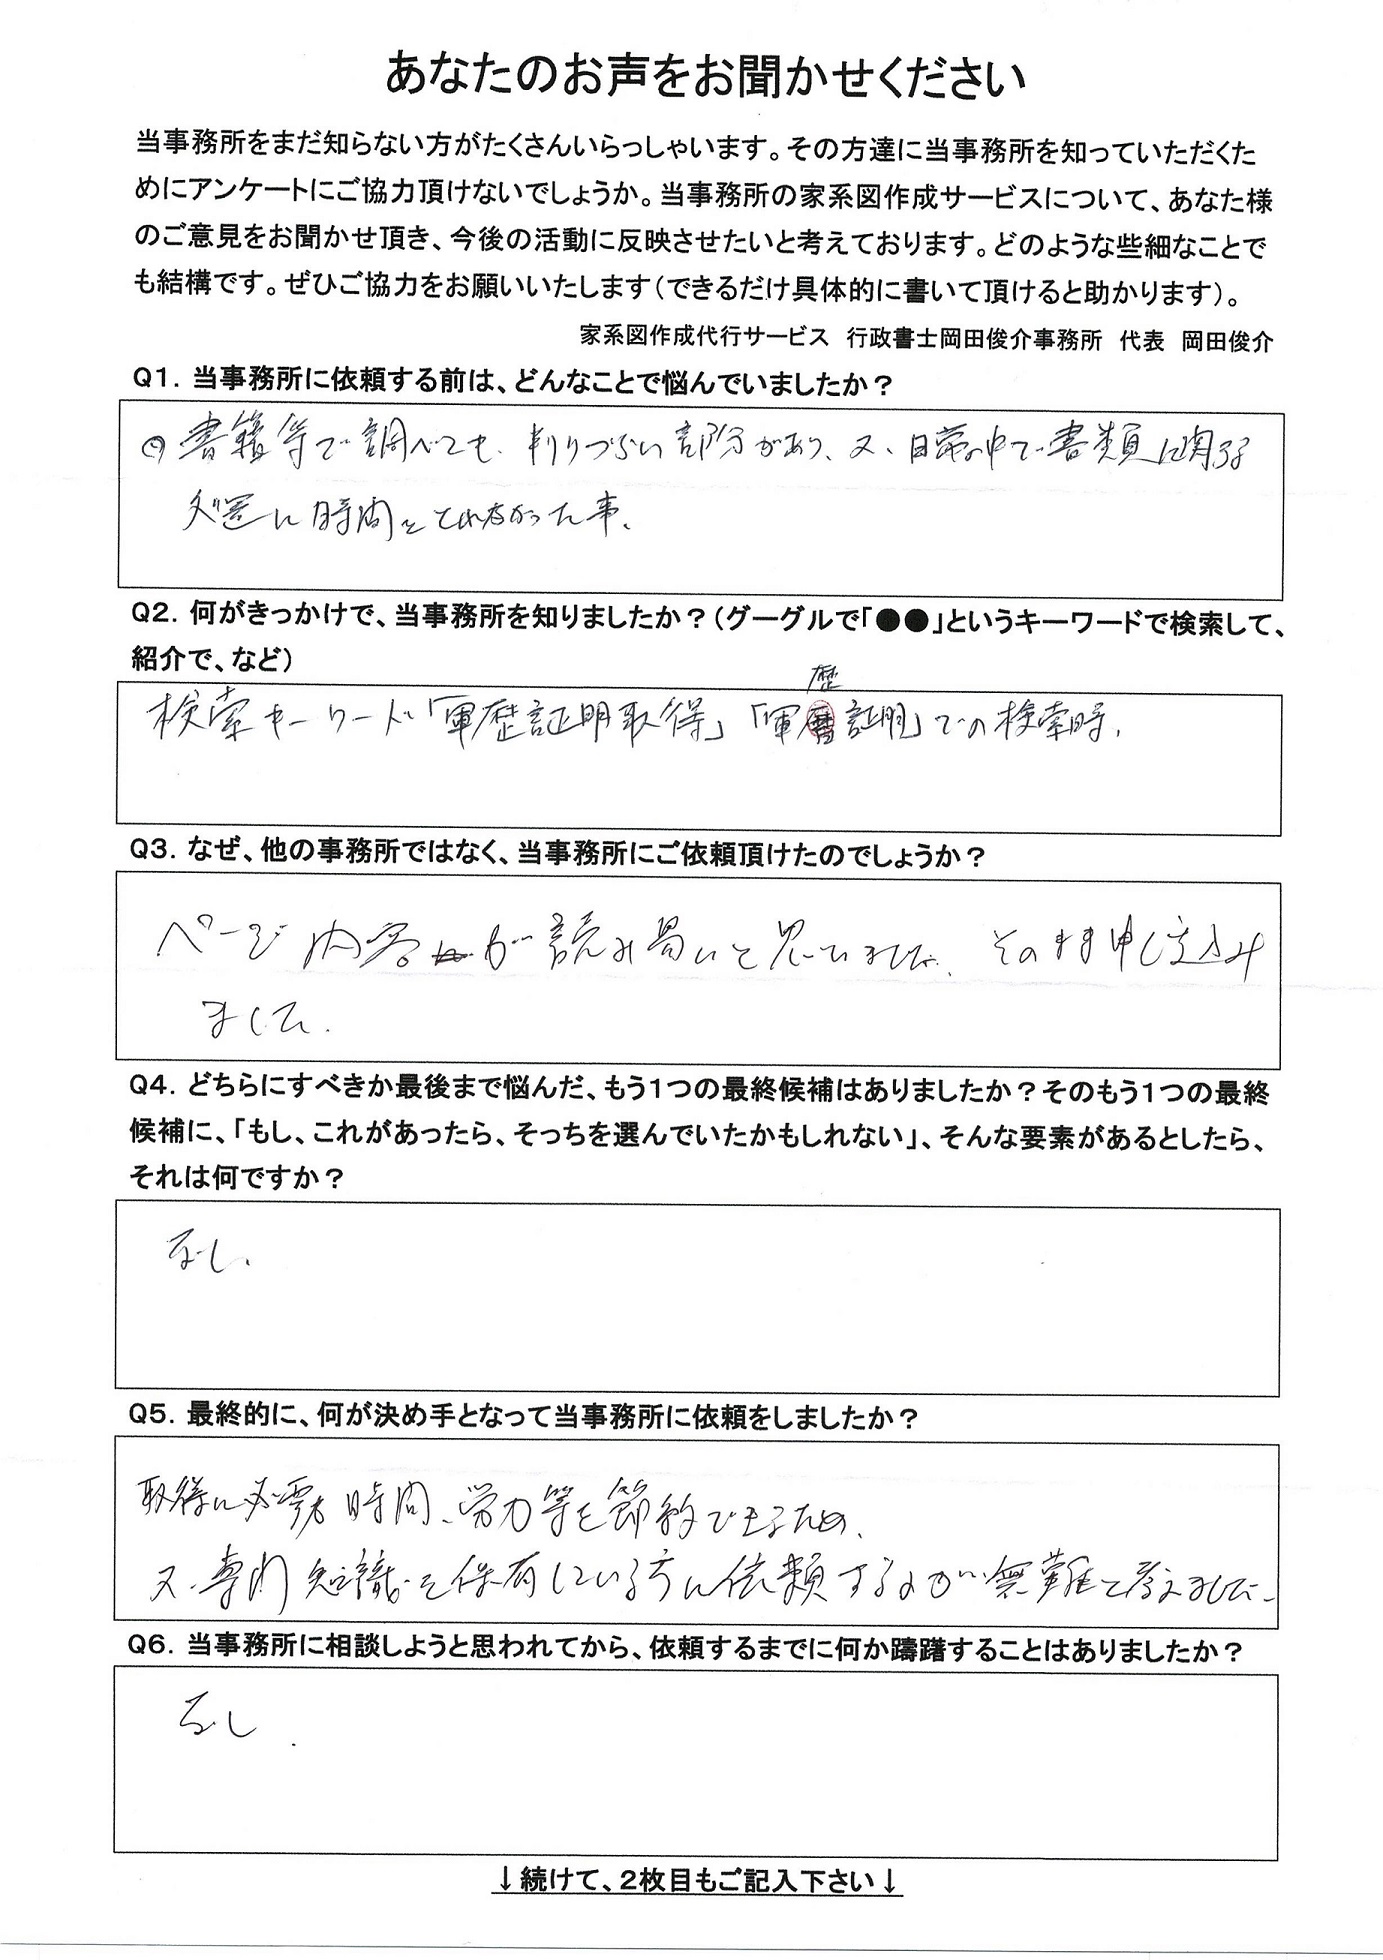 あなたのお声をお聞かせください
当事務所をまだ知らない方がたくさんいらっしゃいます。その方達に当事務所を知っていただくた
めにアンケートにご協力頂けないでしょうか。当事務所の家系図作成サービスについて、あなた様
のご意見をお聞かせ頂き、今後の活動に反映させたいと考えております。どのような些細なことで
も結構です。ぜひご協力をお願いいたします（できるだけ具体的に書いて頂けると助かります）。
家系図作成代行サービス 行政書士岡田俊介事務所 代表 岡田俊介
Q1. 当事務所に依頼する前は、どんなことで悩んでいましたか？
書籍等で調べても、判りづらい部分があり、又、日常の中で書類に関る
処置に時間をとれなかった事、
Q2. 何がきっかけで、当事務所を知りましたか？（グーグルで「●●」というキーワードで検索して、
紹介で、など）
歴
検索キーワード「軍歴証明取得」「軍暦証明」での検索時、
Q3. なぜ、他の事務所ではなく、当事務所にご依頼頂けたのでしょうか？
ページ内容が読み易いと思いました、そのまま申し込み
ました。
Q4. どちらにすべきか最後まで悩んだ、もう１つの最終候補はありましたか？そのもう１つの最終
候補に、「もし、これがあったら、そっちを選んでいたかもしれない」、そんな要素があるとしたら、
それは何ですか？
なし、
Q5. 最終的に、何が決め手となって当事務所に依頼をしましたか？
取得に必要な時間、労力等を節約できるため、
又、専門知識を保有している方に依頼するのが無難と考えました。
Q6. 当事務所に相談しようと思われてから、依頼するまでに何か躊躇することはありましたか？
なし.
↓続けて、２枚目もご記入下さい↓